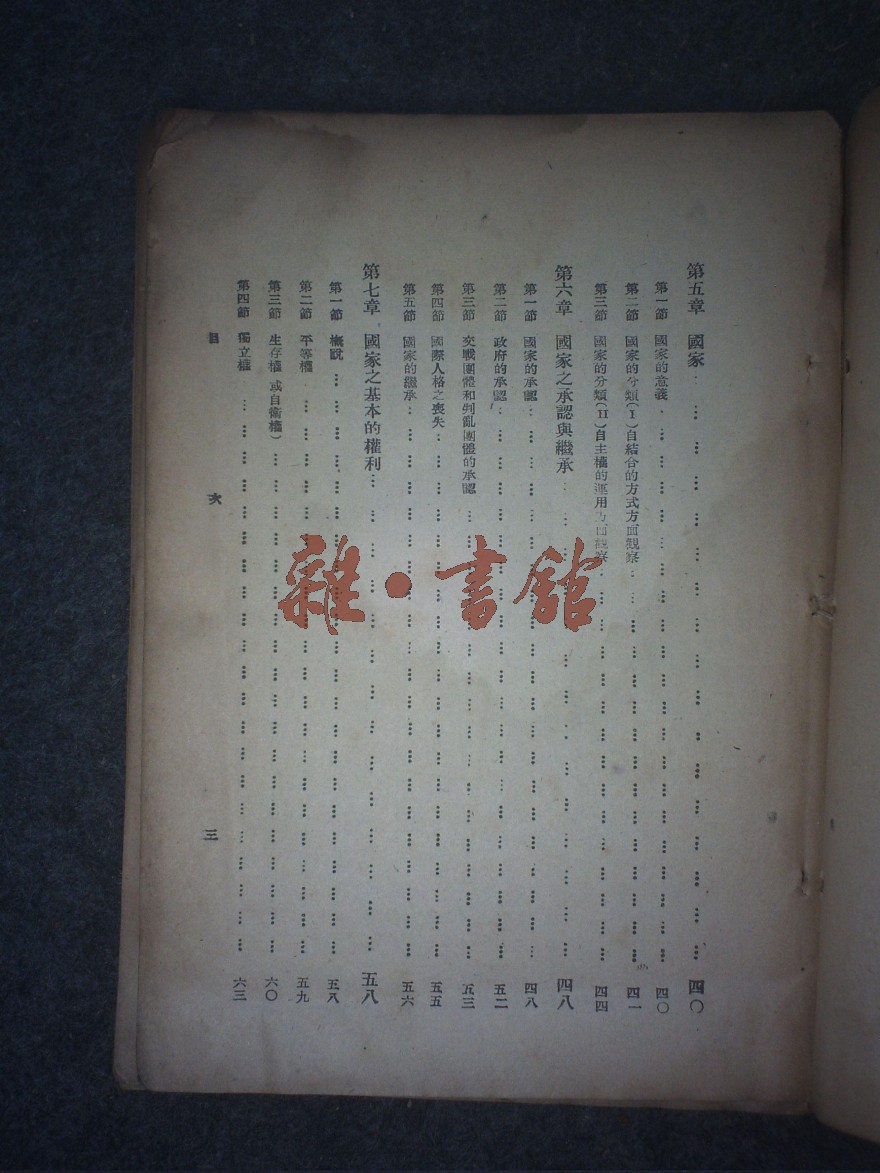 第五章 國家……四〇
第一節 國家的意義……四〇
第二節 國家的分類(I)自結合的方式方面觀察……四一
第三節 國家的分類(II)自主權的運用方面觀察……四四
第六章 國家之承認與繼承……四八
第一節 國家的承認……四八
第二節 政府的承認……五二
第三節 交戰團體和判亂團體的承認……五三
第四節 國際人格之喪失……五五
第五節 國家的繼承……五六
第七章 國家之基本的權利……五八
第一節 概說……五八
第二節 平等權……五九
第三節 生存權(或自衛權)……六〇
第四節 獨立權……六三
目次 三
雜·書館